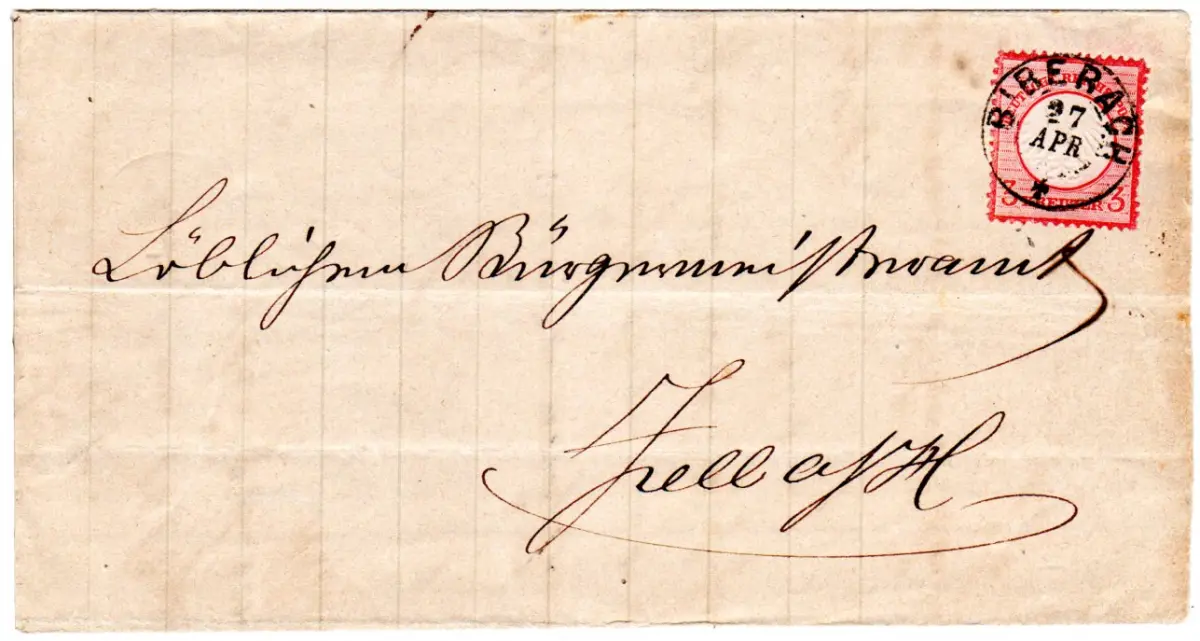 BIBERACH
27
APR
3 KREUZER 3
Löblichem Bürgermeisteramt
Zell a/H